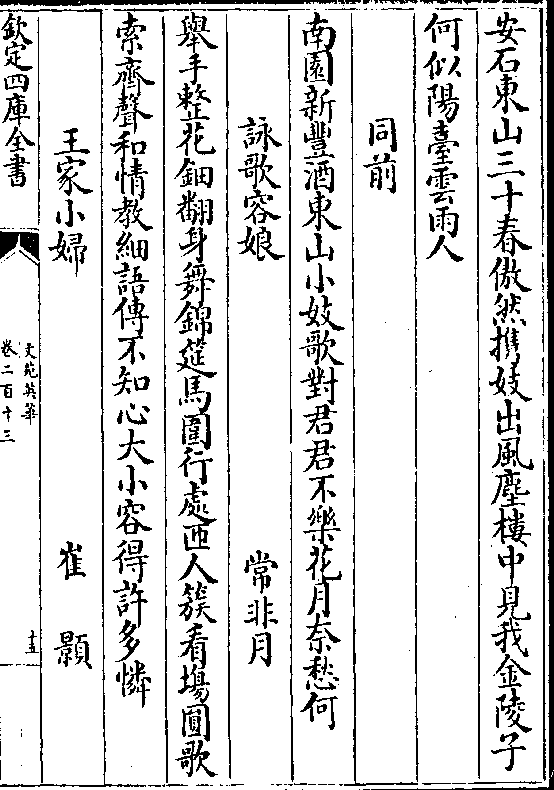 安石東山三十春傲然攜妓出風塵樓中見我金陵子
何似陽臺雲雨人
同前
南園新豐酒東山小妓歌對君君不樂花月奈愁何
詠歌容娘　常非月
舉手整花鈿翻身舞錦筵馬圍行處匝人簇看塲圓歌
索齊聲和情教細語傳不知心大小容得許多憐
王家小婦　崔顥
欽定四庫全書
文苑英華
卷二百十三
十五